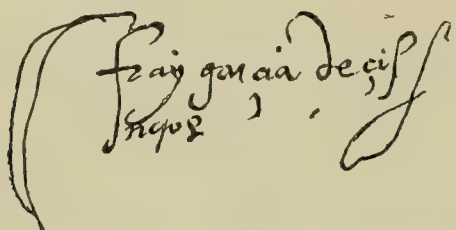 fray garcia de çis
neros